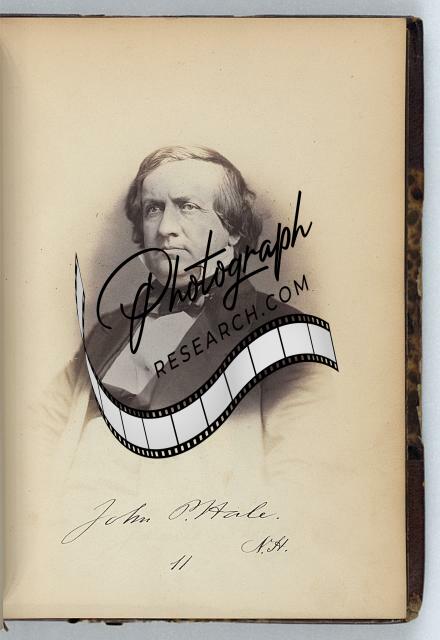 Photograph
RESEARCH.COM
John P. Hale.
N.H.
11